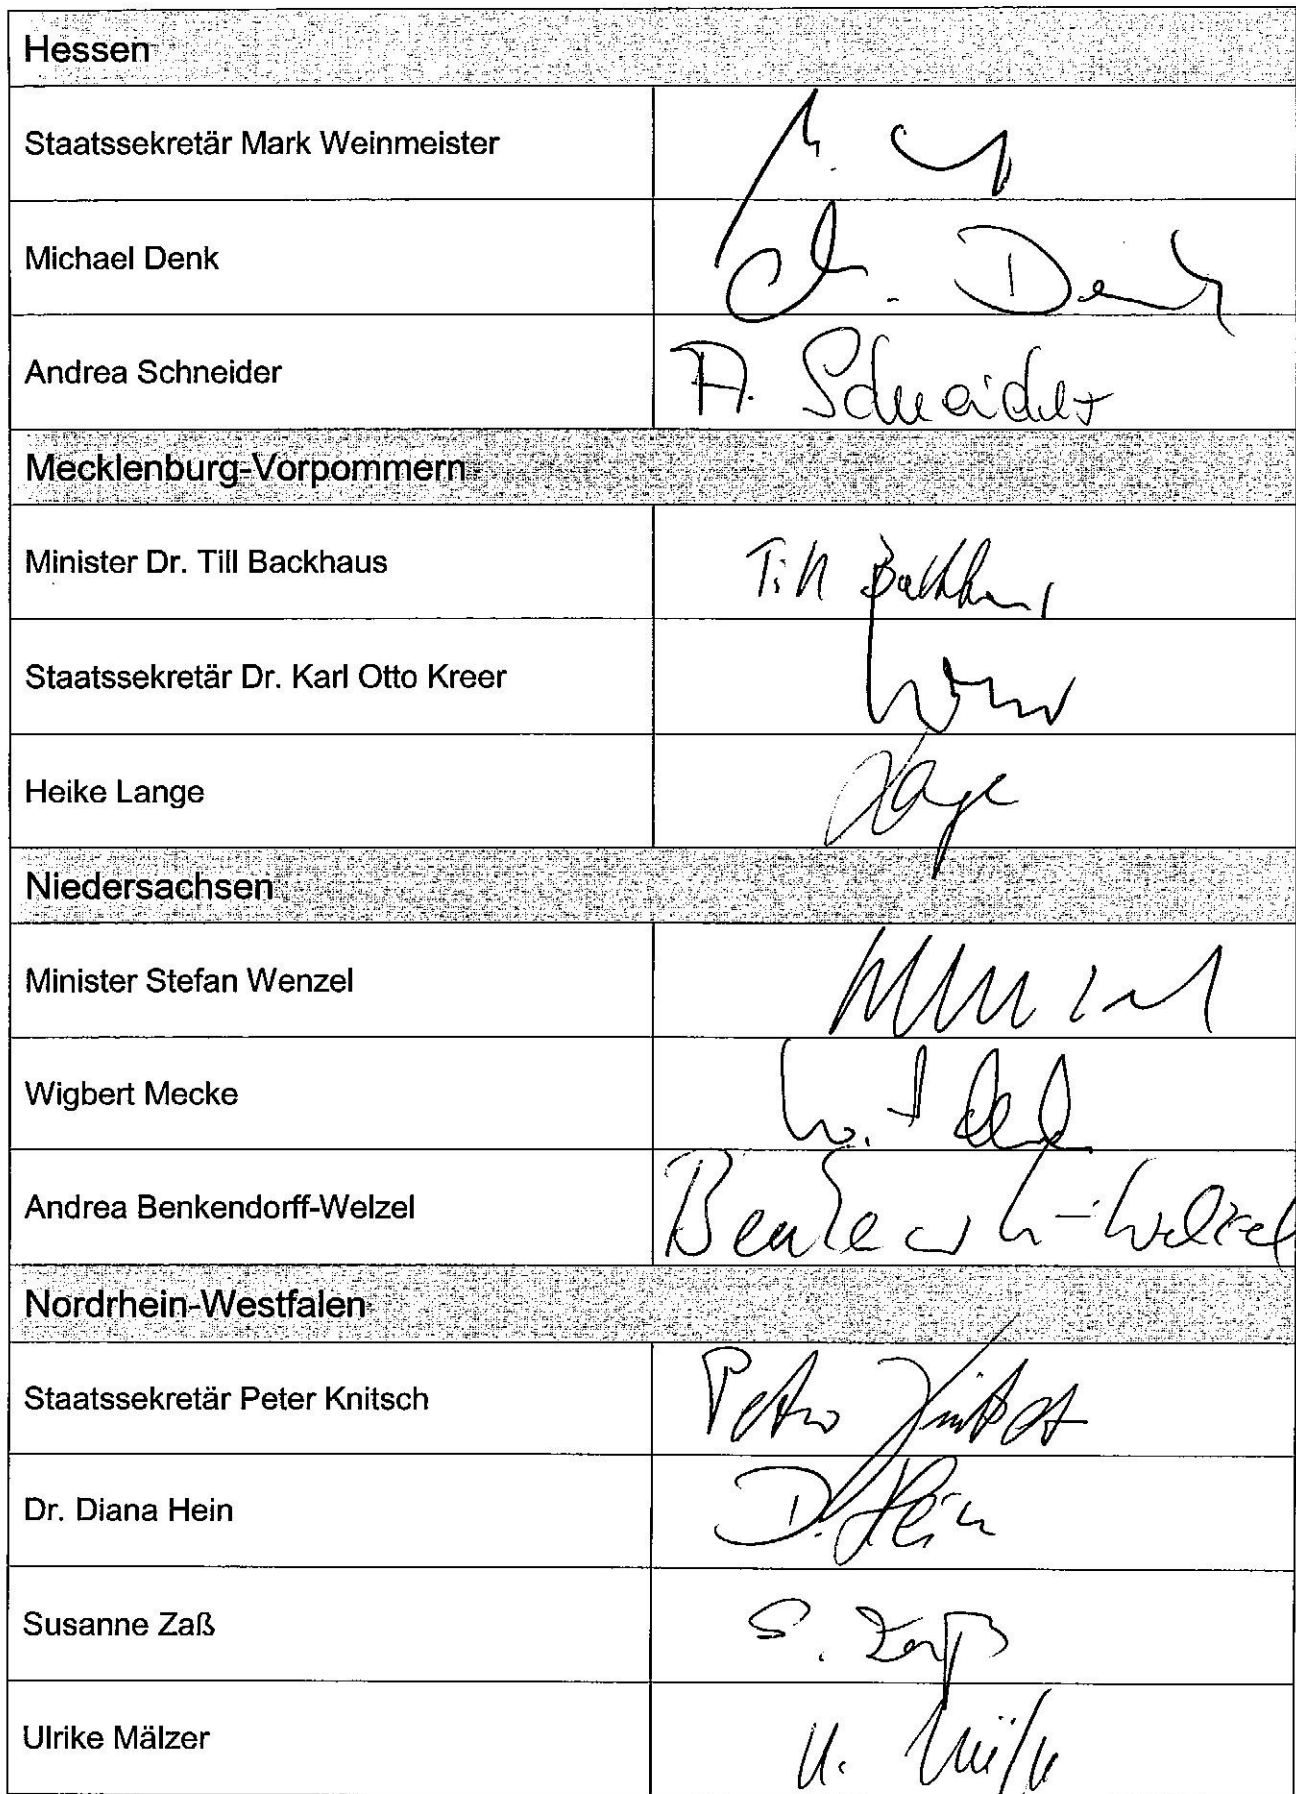 Hessen
Staatssekretär Mark Weinmeister
Michael Denk
Denk
Andrea Schneider
A. Schneider
Mecklenburg-Vorpommern
Minister Dr. Till Backhaus
Till Backhaus
Staatssekretär Dr. Karl Otto Kreer
Heike Lange
Lange
Niedersachsen
Minister Stefan Wenzel
Wigbert Mecke
Andrea Benkendorff-Welzel
Nordrhein-Westfalen
Staatssekretär Peter Knitsch
Peter Knitsch
Dr. Diana Hein
D. Hein
Susanne Zaß
S. Zaß
Ulrike Mälzer
U.